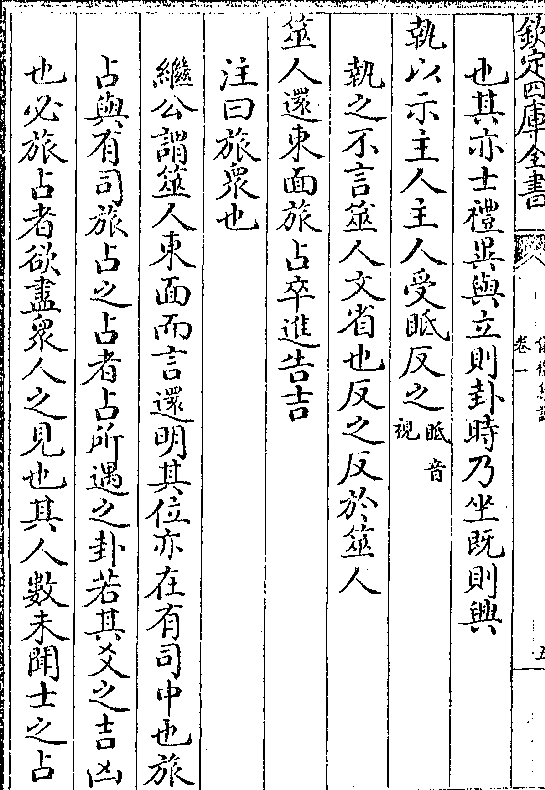 欽定四庫全書
卷一
五
也其亦士禮異與立則卦時乃坐既則興
執以示主人主人受眡反之眡音視
執之不言筮人文省也反之反於筮人
筮人還東面旅占卒進告吉
注曰旅衆也
繼公謂筮人東面而言還明其位亦在有司中也旅
占與有司旅占之占者占所遇之卦若其爻之吉凶
也必旅占者欲盡衆人之見也其人數未聞士之占